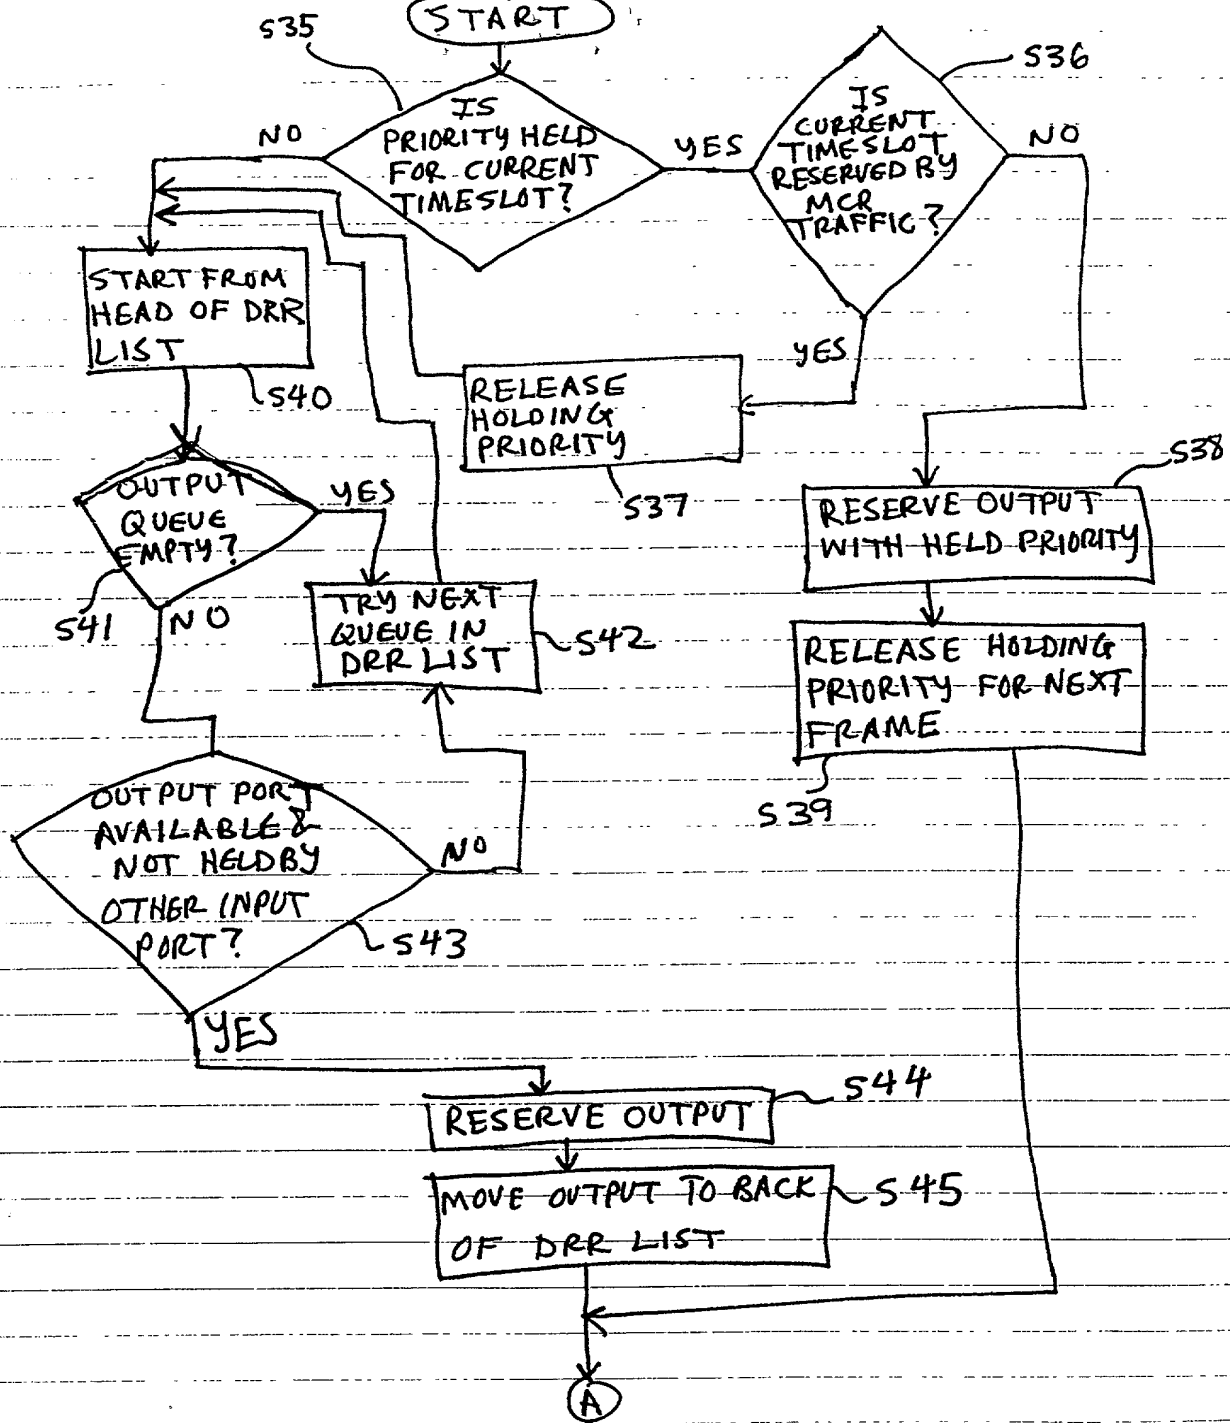 START
S35
IS
PRIORITY HELD
FOR CURRENT
TIMESLOT?
NO
YES
S36
IS
CURRENT
TIMESLOT
RESERVED BY
MCR
TRAFFIC?
NO
YES
START FROM
HEAD OF DRR
LIST
S40
RELEASE
HOLDING
PRIORITY
S37
S38
RESERVE OUTPUT
WITH HELD PRIORITY
OUTPUT
QUEUE
EMPTY?
YES
S41
NO
TRY NEXT
QUEUE IN
DRR LIST
S42
RELEASE HOLDING
PRIORITY FOR NEXT
FRAME
S39
OUTPUT PORT
AVAILABLE &
NOT HELD BY
OTHER INPUT
PORT?
NO
S43
YES
RESERVE OUTPUT
S44
MOVE OUTPUT TO BACK
OF DRR LIST
S45
A